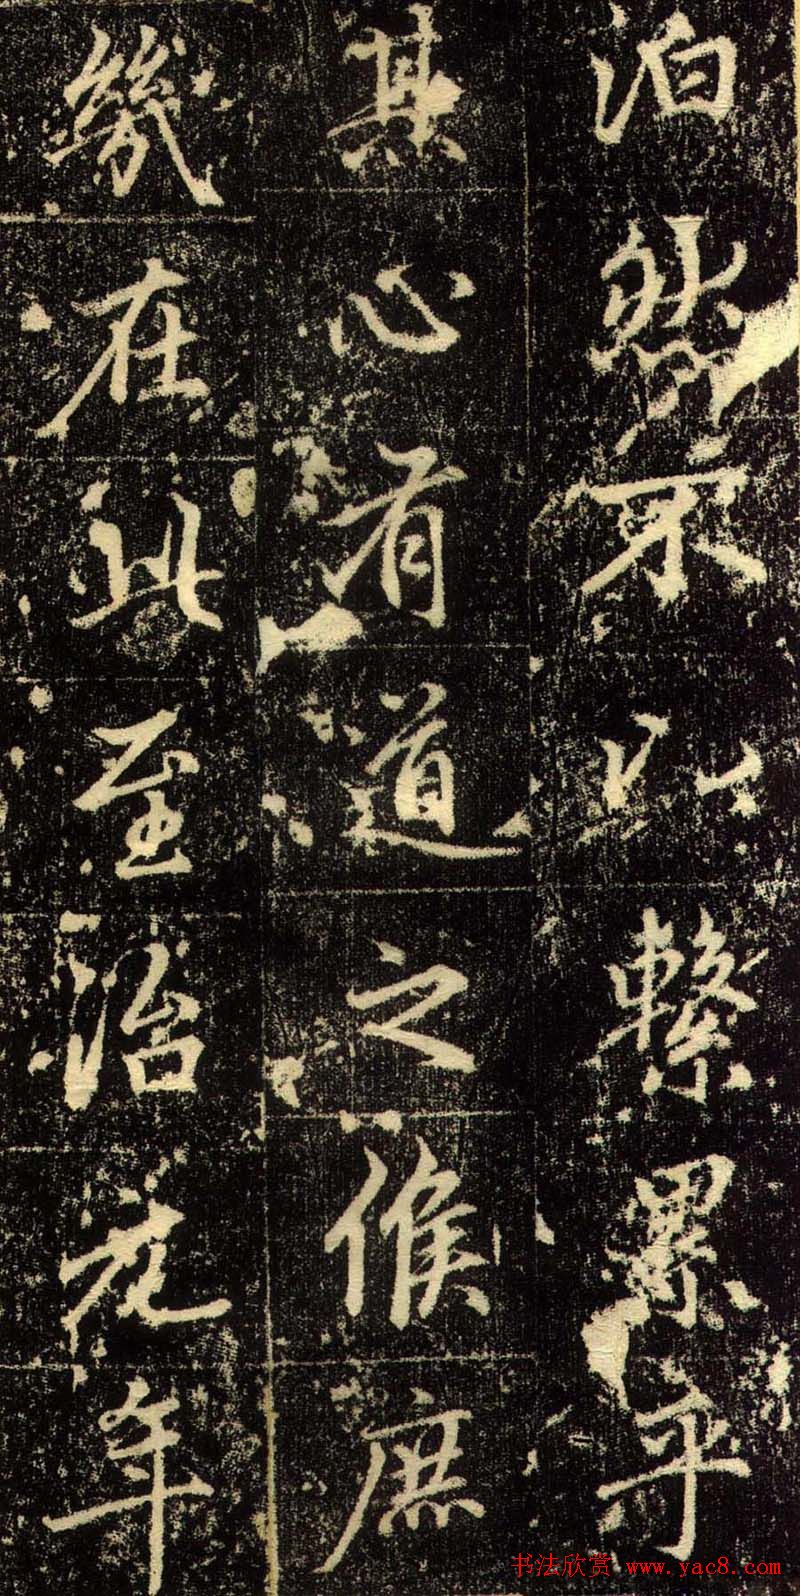 泊然不以繫累乎
其心有道之候庶
幾在此至治元年
书法欣赏 www.yac8.com